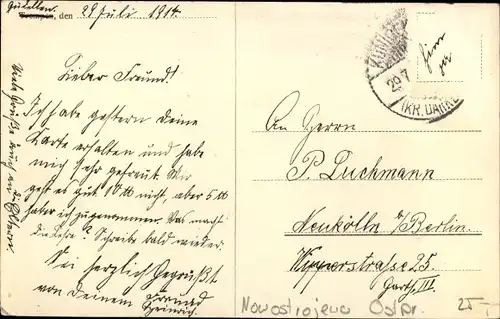 Gudellen.
Trempen, den 28 Juli 1914.
Lieber Freund!
Ich habe gestern Deine
Karte erhalten und habe
mich sehr gefreut. Mir
geht es gut 10 ℔ nicht, aber 5 ℔
habe ich zugenommen. Was macht
die Lehre? Schreibe bald wieder.
Sei herzlich Gegrüßt
von Deinem Freund
Heinrich.
Viele Grüße auch an die Eltern.
29.7
(KR. DARKE
An Herrn
P. Luchmann
Neukölln b/Berlin.
Wipperstrasse 25.
Garth. III.
Nowostrojewo Ostpr.
25,-